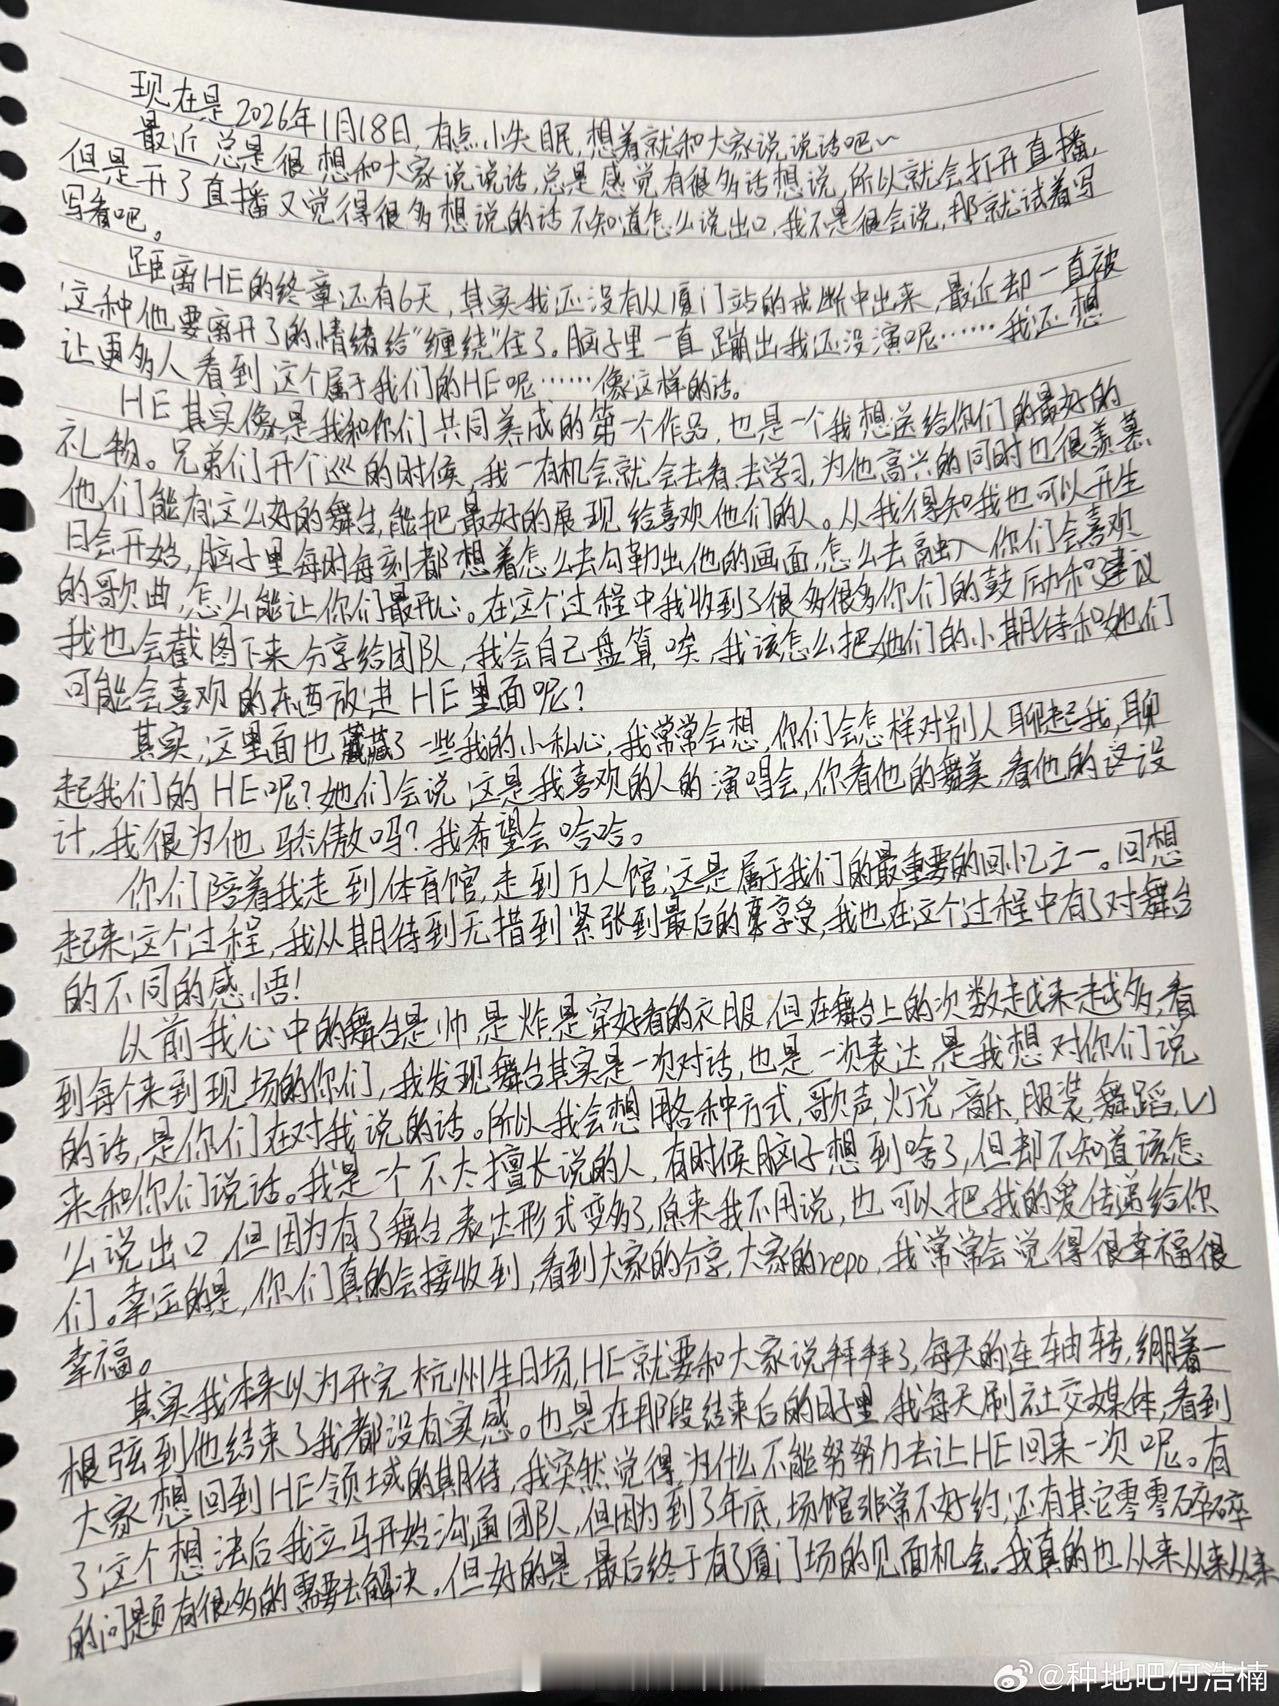 现在是2026年1月18日,有点小失眠,想着就和大家说说话吧~
最近总是很想和大家说说话,总是感觉有很多话想说,所以就会打开直播,
但是开了直播又觉得很多想说的话不知道怎么说出口,我不是很会说,那就试着写
写看吧。
距离HE的终章还有6天,其实我还没有从厦门站的戒断中出来,最近却一直被
这种他要离开了的情绪给“缠绕”住了。脑子里一直蹦出我还没演呢……我还想
让更多人看到这个属于我们的HE呢……像这样的话。
HE其实像是我和你们共同养成的第一个作品,也是一个我想送给你们的最好的
礼物。兄弟们开个巡的时候,我一有机会就会去看,去学习,为他高兴的同时也很羡慕
他们能有这么好的舞台,能把最好的展现给喜欢他们的人。从我得知我也可以开生
日会开始,脑子里每时每刻都想着怎么去勾勒出他的画面,怎么去融入你们会喜欢
的歌曲,怎么能让你们最开心。在这个过程中我收到了很多很多你们的鼓励和建议
我也会截图下来分享给团队,我会自己盘算,唉,我该怎么把她们的小期待和她们
可能会喜欢的东西放进HE里面呢?
其实,这里面也藏了一些我的小私心,我常常会想,你们会怎样对别人聊起我,聊
起我们的HE呢?她们会说这是我喜欢的人的演唱会,你看他的舞美,看他的这设
计,我很为他骄傲吗?我希望会哈哈。
你们陪着我走到体育馆,走到万人馆,这是属于我们的最重要的回忆之一。回想
起来这个过程,我从期待到无措到紧张到最后的享受,我也在这个过程中有了对舞台
的不同的感悟!
以前我心中的舞台是帅,是炸,是穿好看的衣服,但在舞台上的次数越来越多,看
到每个来到现场的你们,我发现舞台其实是一次对话,也是一次表达,是我想对你们说
的话,是你们在对我说的话。所以我会想用各种方式,歌声,灯光,音乐,服装,舞蹈,以
来和你们说话。我是一个不太擅长说的人,有时候脑子想到啥了,但却不知道该怎
么说出口,但因为有了舞台,表达形式变多了,原来我不用说,也可以把我的爱传递给你
们。幸运的是,你们真的会接收到,看到大家的分享,大家的repo,我常常会觉得很幸福很
幸福。
其实我本来以为开完杭州生日场,HE就要和大家说拜拜了,每天的连轴转,绷着一
根弦到他结束了我都没有实感。也是在那段结束后的日子里,我每天刷社交媒体,看到
大家想回到HE领域的期待,我突然觉得,为什么不能努努力去让HE回来一次呢。有
了这个想法后我立马开始沟通团队,但因为到了年底,场馆非常不好约,还有其它零零碎碎
的问题有很多的需要去解决。但好的是,最后终于有了厦门场的见面机会。我真的也从来从来从来
@种地吧何浩楠